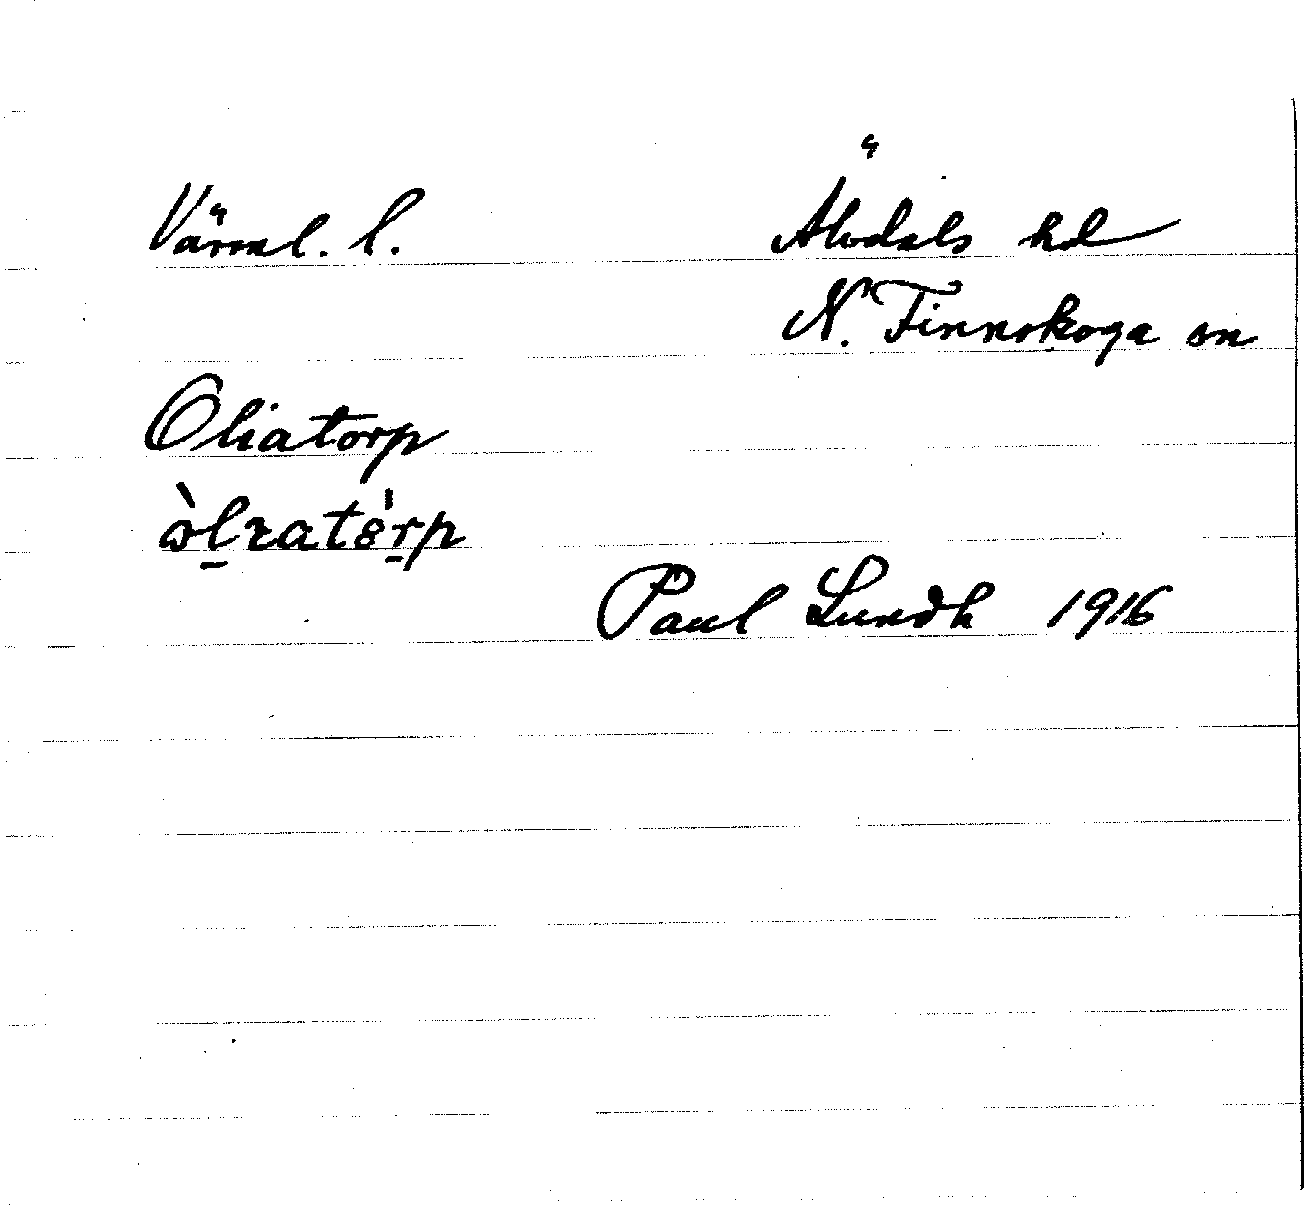 Värml. l. Älvdals hd
N. Finnskoga sn
Oliatorp
Paul Lundh 1916